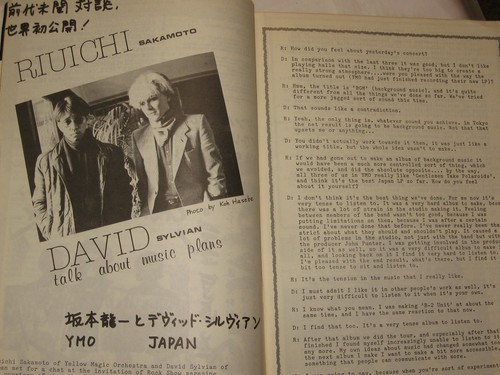 前代未聞 対談,
世界初公開!
RIUICHI SAKAMOTO
Photo by Koh Hasebe
DAVID SYLVIAN
talk about music plans
坂本龍一とデヴィッド・シルヴィアン
YMO JAPAN
Sakamoto of Yellow Magic Orchestra and David Sylvian of
for a chat at the invitation of Rock Show magazine
R: How did you feel about yesterday's concert?
D: In comparison with the last three it was good, but I don't like
playing halls that size. I think they're too big to create a
really strong atmosphere....were you pleased with the way the
album turned out (YMO had just finished recording their new LP)?
R: Umm, the title is "BGM" (background music), and it's quite
different from all the things we've done so far. We've tried
for a more jagged sort of sound this time.
D: That sounds like a contradiction.
R: Yeah, the only thing is, whatever sound you achieve, in Tokyo
the net result is going to be background music. But that that
upsets me or anything..
D: You didn't actually work towards it then, it was just like a
working title, but the whole idea wasn't to make..
R: If we had gone out to make an album of background music it
would have been a much more controlled sort of thing, which
we avoided, and did the absolute opposite.... By the way,
all three of us in YMO really like 'Gentlemen Take Polaroids',
and think it's the best Japan LP so far. How do you feel
about it yourself?
D: I don't think it's the best thing we've done. For me now it's
very tense to listen to. It was a very hard album to make, because
there was a lot of strain in the studio making it. The relationship
between members of the band wasn't too good, because I was
putting limitations on them, because I was after a certain
sound. I've never done that before. I've never really been that
strict about what they should and shouldn't play. It caused a
lot of problems in the studio, not just with the band but with
the producer John Punter. I was getting involved in the production
side of it as well, so it was a very difficult album to make
all, and looking back on it I find it very hard to listen to.
I'm pleased with the end result, what's there, but I find it
bit too tense to sit and listen to.
R: It's the tension in the music that I really like.
D: I must admit I like it in other people's work as well, it's
just very difficult to listen to it when it's your own.
R: I know what you mean. I was making 'B-2 Unit' at about the
same time, and I have the same reaction to that now.
D: I find that too. It's a very tense album to listen to.
R: After that album we did the tour, and especially after that
finished I found myself increasingly unable to listen to it
any more. My own ideas about music had changed somewhat too
the next album I make I want to make a bit more accessible,
something that people can communicate with more.